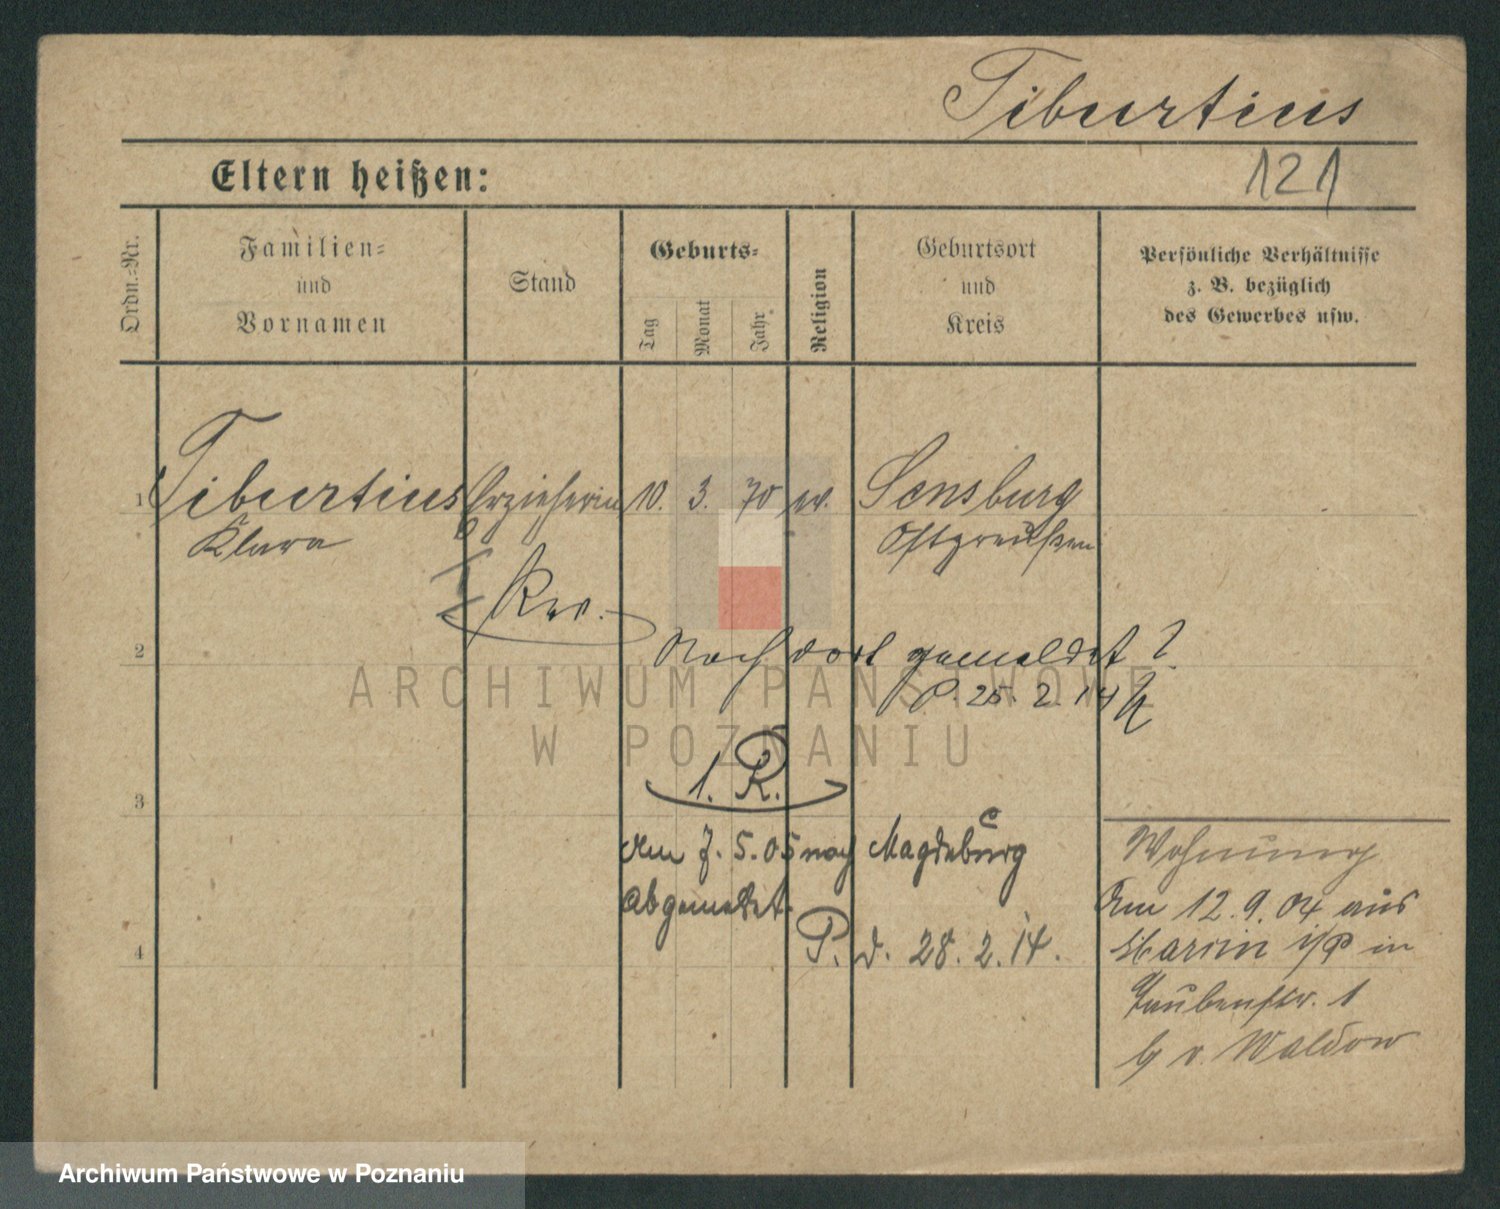 Tiburtius
121
Eltern heißen:
Ordn.-Nr.
Familien-
und
Vornamen
Stand
Geburts-
Tag
Monat
Jahr
Religion
Geburtsort
und
Kreis
Persönliche Verhältnisse
z. B. bezüglich
des Gewerbes usw.
1 Tiburtius Erzieherin 10. 3. 70 ev. Sensburg
Klara Ostpreußen
2 Noch dort gemeldet?
P. 25. 2. 14
ARCHIWUM PAŃSTWOWE
W POZNANIU
1. R.
3
Am 7. 5. 05 nach Magdeburg
abgemeldet.
P. d. 28. 2. 14.
4
Wohnung
Am 12. 9. 04 aus
in
Taubenstr. 1
b v. Waldow
Archiwum Państwowe w Poznaniu